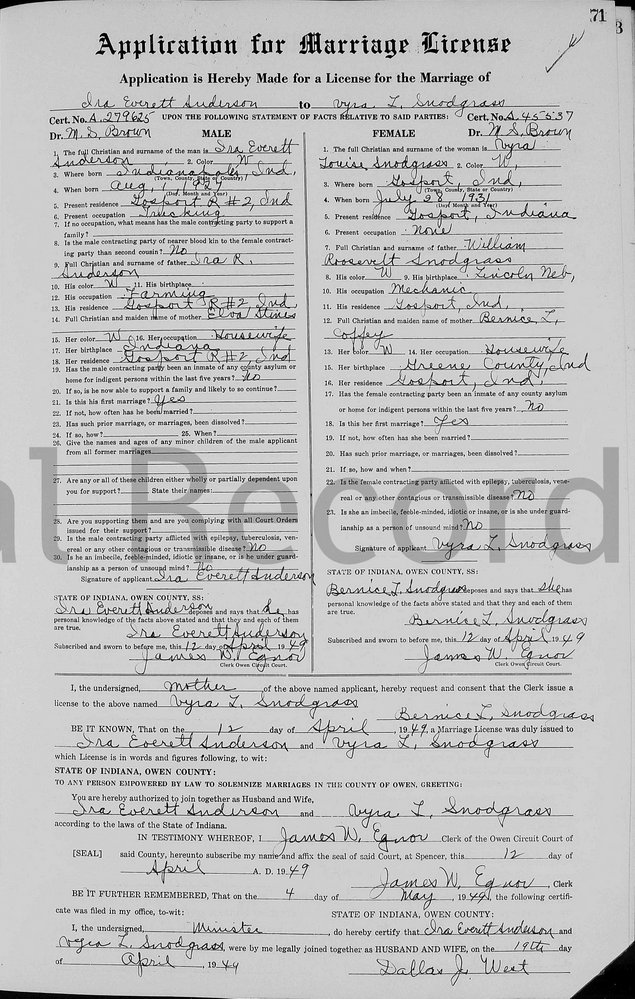 71
Application for Marriage License
Application is Hereby Made for a License for the Marriage of
Ira Everett Anderson to Vyra L. Snodgrass
Cert. No. A. 279625 UPON THE FOLLOWING STATEMENT OF FACTS RELATIVE TO SAID PARTIES: Cert. No. A. 45537
Dr. M. S. Brown MALE
1. The full Christian and surname of the man is Ira Everett
Anderson 2. Color W
3. Where born Indianapolis, Ind,
(Town, County, State or Country)
4. When born Aug, 1 1927
(Day, Month and Year)
5. Present residence Gosport R#2, Ind
6. Present occupation Trucking
7. If no occupation, what means has the male contracting party to support a
family?
8. Is the male contracting party of nearer blood kin to the female contract-
ing party than second cousin? No
9. Full Christian and surname of father Ira R.
Anderson
10. His color W 11. His birthplace
12. His occupation Farming
13. His residence Gosport R#2 Ind
14. Full Christian and maiden name of mother Elva Stines
15. Her color W 16. Her occupation Housewife
17. Her birthplace Indiana
18. Her residence Gosport R#2, Ind
19. Has the male contracting party been an inmate of any county asylum or
home for indigent persons within the last five years? No
20. If so, is he now able to support a family and likely to so continue?
21. Is this his first marriage? Yes
22. If not, how often has he been married?
23. Has such prior marriage, or marriages, been dissolved?
24. If so, how? 25. When?
26. Give the names and ages of any minor children of the male applicant
from all former marriages
27. Are any or all of these children either wholly or partially dependent upon
you for support? State their names:
28. Are you supporting them and are you complying with all Court Orders
issued for their support?
29. Is the male contracting party afflicted with epilepsy, tuberculosis, ven-
ereal or any other contagious or transmissible disease? No
30. Is he an imbecile, feeble-minded, idiotic or insane, or is he under guard-
ianship as a person of unsound mind? No
Signature of applicant Ira Everett Anderson
STATE OF INDIANA, OWEN COUNTY, SS:
Ira Everett Anderson deposes and says that he has
personal knowledge of the facts above stated and that they and each of them
are true.
Ira Everett Anderson
Subscribed and sworn to before me, this 12 day of April, 1949
James W. Egnor
Clerk Owen Circuit Court.
FEMALE Dr. M. S. Brown
1. The full Christian and surname of the woman is Vyra
Louise Snodgrass 2. Color W,
3. Where born Gosport, Ind,
(Town, County, State or Country)
4. When born July 28 1931
(Day, Month and Year)
5. Present residence Gosport, Indiana
6. Present occupation None
7. Full Christian and surname of father William
Roosevelt Snodgrass
8. His color W 9. His birthplace Lincoln Neb,
10. His occupation Mechanic
11. His residence Gosport, Ind,
12. Full Christian and maiden name of mother Bernice L,
Coffey
13. Her color W 14. Her occupation Housewife
15. Her birthplace Greene County, Ind
16. Her residence Gosport, Ind,
17. Has the female contracting party been an inmate of any county asylum
or home for indigent persons within the last five years? No
18. Is this her first marriage? Yes
19. If not, how often has she been married?
20. Has such prior marriage, or marriages, been dissolved?
21. If so, how and when?
22. Is the female contracting party afflicted with epilepsy, tuberculosis, vene-
real or any other contagious or transmissible disease? No
23. Is she an imbecile, feeble-minded, idiotic or insane, or is she under guard-
ianship as a person of unsound mind? No
Signature of applicant Vyra L. Snodgrass
STATE OF INDIANA, OWEN COUNTY, SS:
Bernice L. Snodgrass deposes and says that she has
personal knowledge of the facts above stated and that they and each of them
are true.
Bernice L. Snodgrass
Subscribed and sworn to before me, this 12 day of April, 1949
James W. Egnor
Clerk Owen Circuit Court.
al Record
I, the undersigned, mother of the above named applicant, hereby request and consent that the Clerk issue a
license to the above named Vyra L. Snodgrass
Bernice L. Snodgrass
BE IT KNOWN, That on the 12 day of April, 1949, a Marriage License was duly issued to
Ira Everett Anderson and Vyra L. Snodgrass
which License is in words and figures following, to wit:
STATE OF INDIANA, OWEN COUNTY:
TO ANY PERSON EMPOWERED BY LAW TO SOLEMNIZE MARRIAGES IN THE COUNTY OF OWEN, GREETING:
You are hereby authorized to join together as Husband and Wife,
Ira Everett Anderson and Vyra L. Snodgrass
according to the laws of the State of Indiana.
IN TESTIMONY WHEREOF, I James W. Egnor Clerk of the Owen Circuit Court of
[SEAL] said County, hereunto subscribe my name and affix the seal of said Court, at Spencer, this 12 day of
April A. D. 1949
James W. Egnor, Clerk
BE IT FURTHER REMEMBERED, That on the 4 day of May, 1949, the following certifi-
cate was filed in my office, to-wit: STATE OF INDIANA, OWEN COUNTY:
I, the undersigned, Minister, do hereby certify that Ira Everett Anderson and
Vyra L. Snodgrass, were by me legally joined together as HUSBAND AND WIFE, on the 19th day
of April, 1949
Dallas J. West